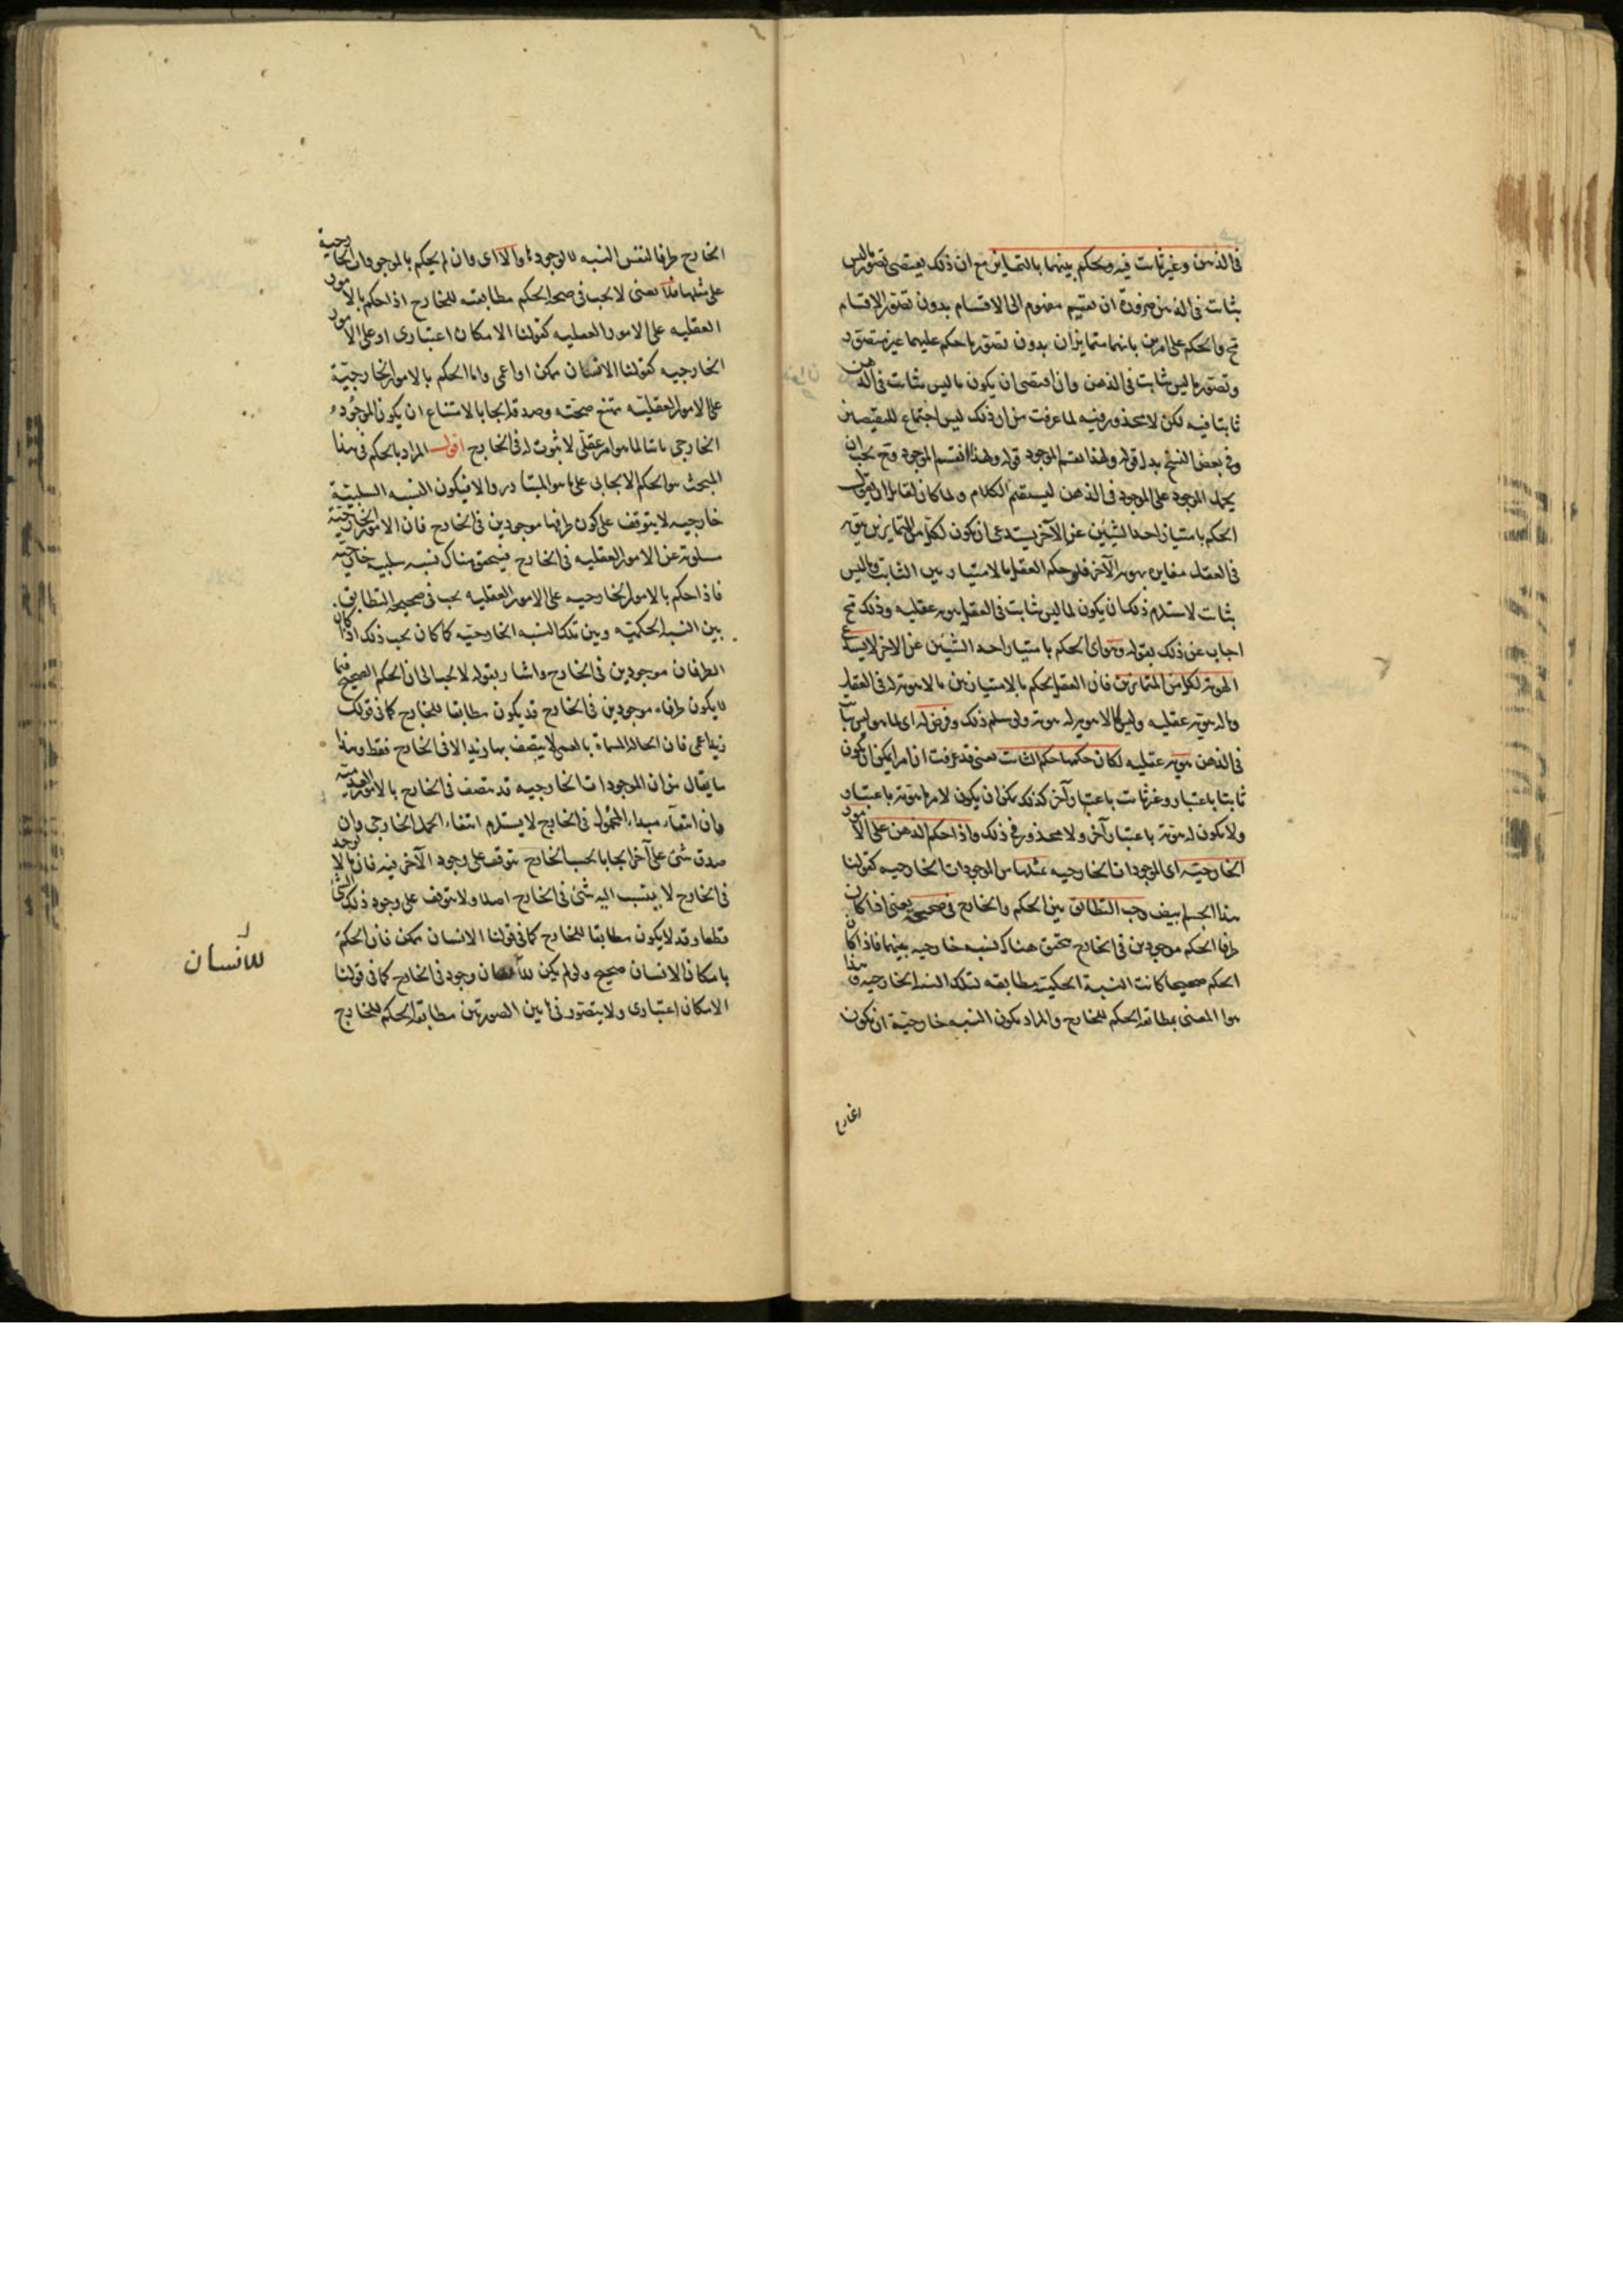 في الذهن وغير ثابت فيه ويحكم بينهما بالتمايز مع ان ذلك يقتضي تصور ما ليس
بثابت في الذهن ضرورة ان تقسيم مفهوم الى الاقسام بدون تعقل الاقسام
مح والحكم على امرين بانهما متمايزان بدون تصور ما حكم عليهما غير متصور
وتصور ما ليس بثابت في الذهن وان اقتضى ان يكون ما ليس بثابت في الذهن
ثابتا فيه لكن لا محذور فيه لما عرفت من ان ذلك ليس اجتماع للنقيضين
وفي بعض النسخ بدل قوله ولهذا نقسم الموجود قوله ولهذا انقسم الموجود وح يجب ان
يحمل الموجود على الموجود في الذهن ليستقيم الكلام ولما كان لقائل ان يقول
الحكم بامتياز احد الشيئين عن الآخر يستدعي ان يكون لكل من المتمايزين هوية
في العقل مغايرة لهوية الآخر فلو حكم العقل بالامتياز بين الثابت وما ليس
بثابت لاستلزم ذلك ان يكون لما ليس بثابت في العقل هوية عقلية وذلك مح
اجاب عن ذلك بقوله وهو اي الحكم بامتياز احد الشيئين عن الاخر لا يستدعي
الهوية لكل من المتمايزين فان العقل يحكم بالامتياز بين ما لا هوية له في العقل
وما له هوية عقلية وليس لما لا هوية له هوية ولو سلم ذلك وفرض له اي لما هو ليس بثابت
في الذهن هوية عقلية لكان حكمها حكم الثابت يعني قد عرفت ان امرا يمكن ان يكون
ثابتا باعتبار وغير ثابت باعتبار آخر كذلك يمكن ان يكون لامر ما هوية باعتبار
ولا يكون له هوية باعتبار آخر ولا محذور في ذلك واذا حكم الذهن على الامور
الخارجية اي الموجودات الخارجية بمثلها من الموجودات الخارجية كقولنا
هذا الجسم ابيض وجب التطابق بين الحكم والخارج في صحيحه يعني اذا كان
طرفا الحكم موجودين في الخارج تحقق هناك نسبة خارجية بينهما فاذا كان
الحكم صحيحا كانت النسبة الحكمية مطابقة لتلك النسبة الخارجية وهذا
هو المعني بمطابقة الحكم للخارج والمراد بكون النسبة خارجية ان يكون
الخارج
الخارج ظرفا لنفس النسبة لا لوجودها والا اي وان لم يحكم بالموجودات الخارجية
على مثلها فلا يعني لا يجب في صحة الحكم مطابقته للخارج اذا حكم بالامور
العقلية على الامور العقلية كقولنا الامكان اعتباري او على الامور
الخارجية كقولنا الانسان ممكن او اعمى واما الحكم بالامور الخارجية
على الامور العقلية يمتنع صحته وصدقه ايجابا لامتناع ان يكون الموجود
الخارجي ثابتا لما هو امر عقلي لا ثبوت له في الخارج اقول المراد بالحكم في هذا
المبحث هو الحكم الايجابي على ما هو المتبادر والا فيكون النسبة السلبية
خارجية لا يتوقف على كون طرفيها موجودين في الخارج فان الامور الخارجية
مسلوبة عن الامور العقلية في الخارج فيتحقق هناك نسبة سلبية خارجية
فاذا حكم بالامور الخارجية على الامور العقلية يجب في صحيحه التطابق
بين النسبة الحكمية وبين تلك النسبة الخارجية كما كان يجب ذلك اذا كان
الطرفان موجودين في الخارج واشار بقوله لا يجب الى ان الحكم الصحيح فيما
لا يكون طرفاه موجودين في الخارج قد يكون مطابقا للخارج كما في قولك
زيد اعمى فان الحالة المسماة بالعمى لا يتصف بها زيد الا في الخارج فقط وهذا
ما يقال من ان الموجودات الخارجية قد تتصف في الخارج بالامور العدمية
وان انتفاء مبداء المحمول في الخارج لا يستلزم انتفاء الحمل الخارجي وان
صدق شئ على آخر ايجابا بحسب الخارج يتوقف على وجود الآخر فيه فان ما لا يوجد
في الخارج لا ينتسب اليه شئ في الخارج اصلا ولا يتوقف على وجود ذلك الشئ
قطعا وقد لا يكون مطابقا للخارج كما في قولنا الانسان ممكن فان الحكم
بامكان الانسان صحيح ولو لم يكن للانسان وجود في الخارج كما في قولنا
الامكان اعتباري ولا يتصور في هاتين الصورتين مطابقة الحكم للخارج
للانسان